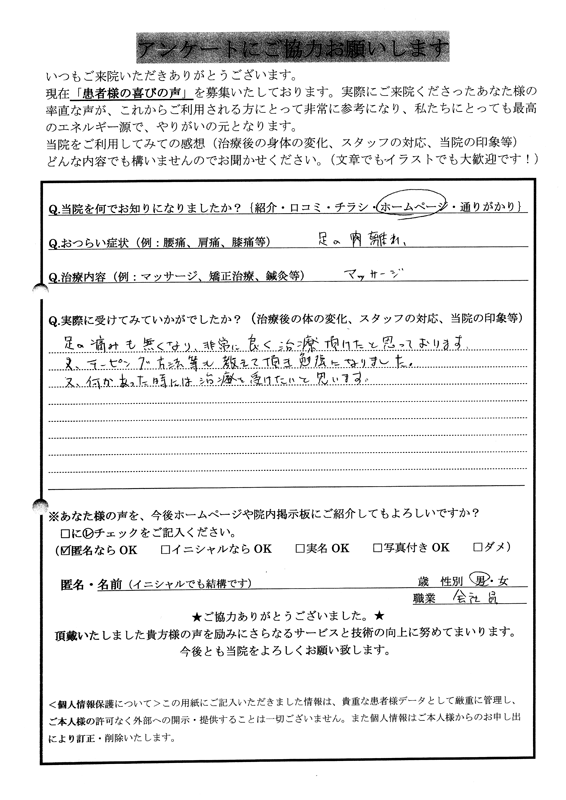 アンケートにご協力お願いします
いつもご来院いただきありがとうございます。
現在「患者様の喜びの声」を募集いたしております。実際にご来院くださったあなた様の
率直な声が、これからご利用される方にとって非常に参考になり、私たちにとっても最高
のエネルギー源で、やりがいの元となります。
当院をご利用してみての感想（治療後の身体の変化、スタッフの対応、当院の印象等）
どんな内容でも構いませんのでお聞かせください。（文章でもイラストでも大歓迎です！）
Q.当院を何でお知りになりましたか？｛紹介・口コミ・チラシ・ホームページ・通りがかり｝
Q.おつらい症状（例：腰痛、肩痛、膝痛等） 足の肉離れ、
Q.治療内容（例：マッサージ、矯正治療、鍼灸等） マッサージ
Q.実際に受けてみていかがでしたか？（治療後の体の変化、スタッフの対応、当院の印象等）
足の痛みも無くなり、非常に良く治療頂けたと思っております。
又、テーピング方法等も教えて頂き勉強になりました。
又、何かあった時には治療を受けたいと思います。
※あなた様の声を、今後ホームページや院内掲示板にご紹介してもよろしいですか？
□にレチェックをご記入ください。
（☑匿名なら OK　□イニシャルなら OK　□実名 OK　□写真付き OK　□ダメ）
匿名・名前（イニシャルでも結構です） 歳　性別　男・女
職業　会社員
★ご協力ありがとうございました。★
頂戴いたしました貴方様の声を励みにさらなるサービスと技術の向上に努めてまいります。
今後とも当院をよろしくお願い致します。
＜個人情報保護について＞この用紙にご記入いただきました情報は、貴重な患者様データとして厳重に管理し、
ご本人様の許可なく外部への開示・提供することは一切ございません。また個人情報はご本人様からのお申し出
により訂正・削除いたします。